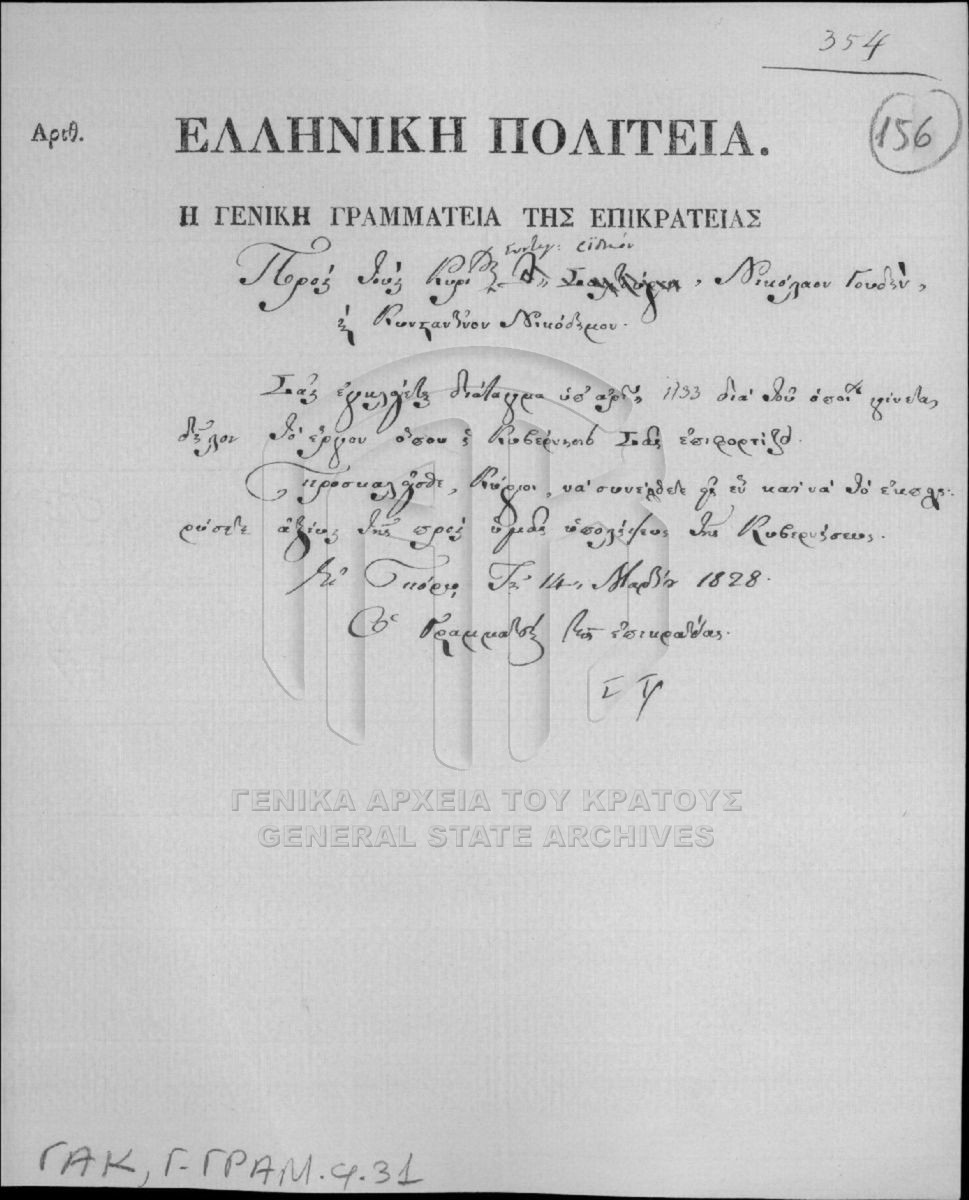 354
Αριθ. ΕΛΛΗΝΙΚΗ ΠΟΛΙΤΕΙΑ.
156
Η ΓΕΝΙΚΗ ΓΡΑΜΜΑΤΕΙΑ ΤΗΣ ΕΠΙΚΡΑΤΕΙΑΣ
Πρὸς τοὺς Κυρί Νικόλαον
Κωνσταντῖνον Νικόδημον.
Σᾶς ἐγκλείεται διάταγμα ὑπ' ἀρ: 1733 διὰ τοῦ ὁποίου γίνεται
δῆλον τὸ ἔργον ὁποῦ ἡ Κυβέρνησις Σᾶς ἐπιφορτίζει.
Προσκαλεῖσθε, Κύριοι, νὰ συνέλθετε καὶ νὰ τὸ ἐκπλη-
ρώσετε ἀξίως τῆς πρὸς ὑμᾶς ὑπολήψεως τῆς Κυβερνήσεως.
Ἐν Πόρῳ Τῇ 14 Μαρτίου 1828.
Ὁ Γραμματεὺς τῆς ἐπικρατείας.
Σ Τρ
ΓΕΝΙΚΑ ΑΡΧΕΙΑ ΤΟΥ ΚΡΑΤΟΥΣ
GENERAL STATE ARCHIVES
ΓΑΚ, Γ. ΓΡΑΜ. φ. 31